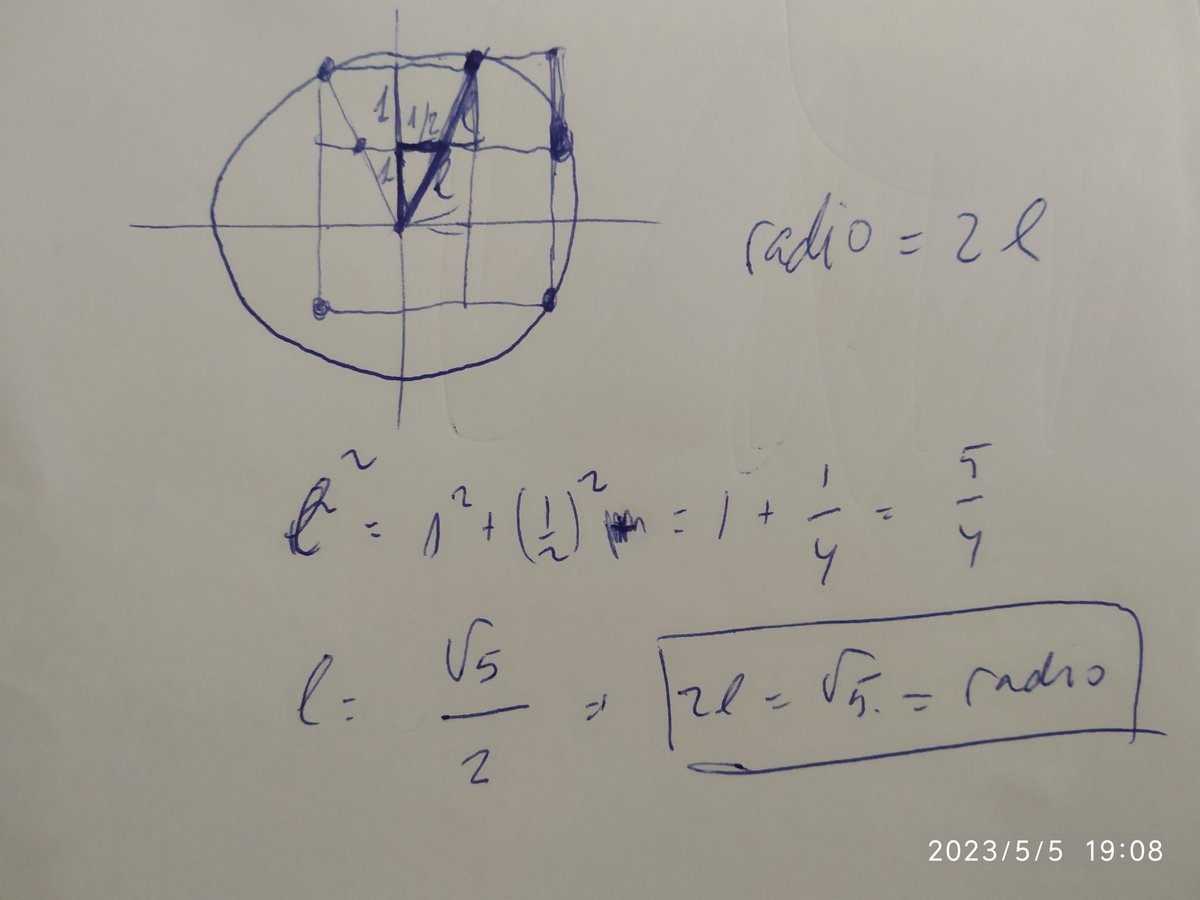 1
1/2
l
1
l
radio = 2 l
l² = 1² + (1/2)² = 1 + 1/4 = 5/4
l = √5/2 ⇒ 2l = √5 = radio
2023/5/5 19:08